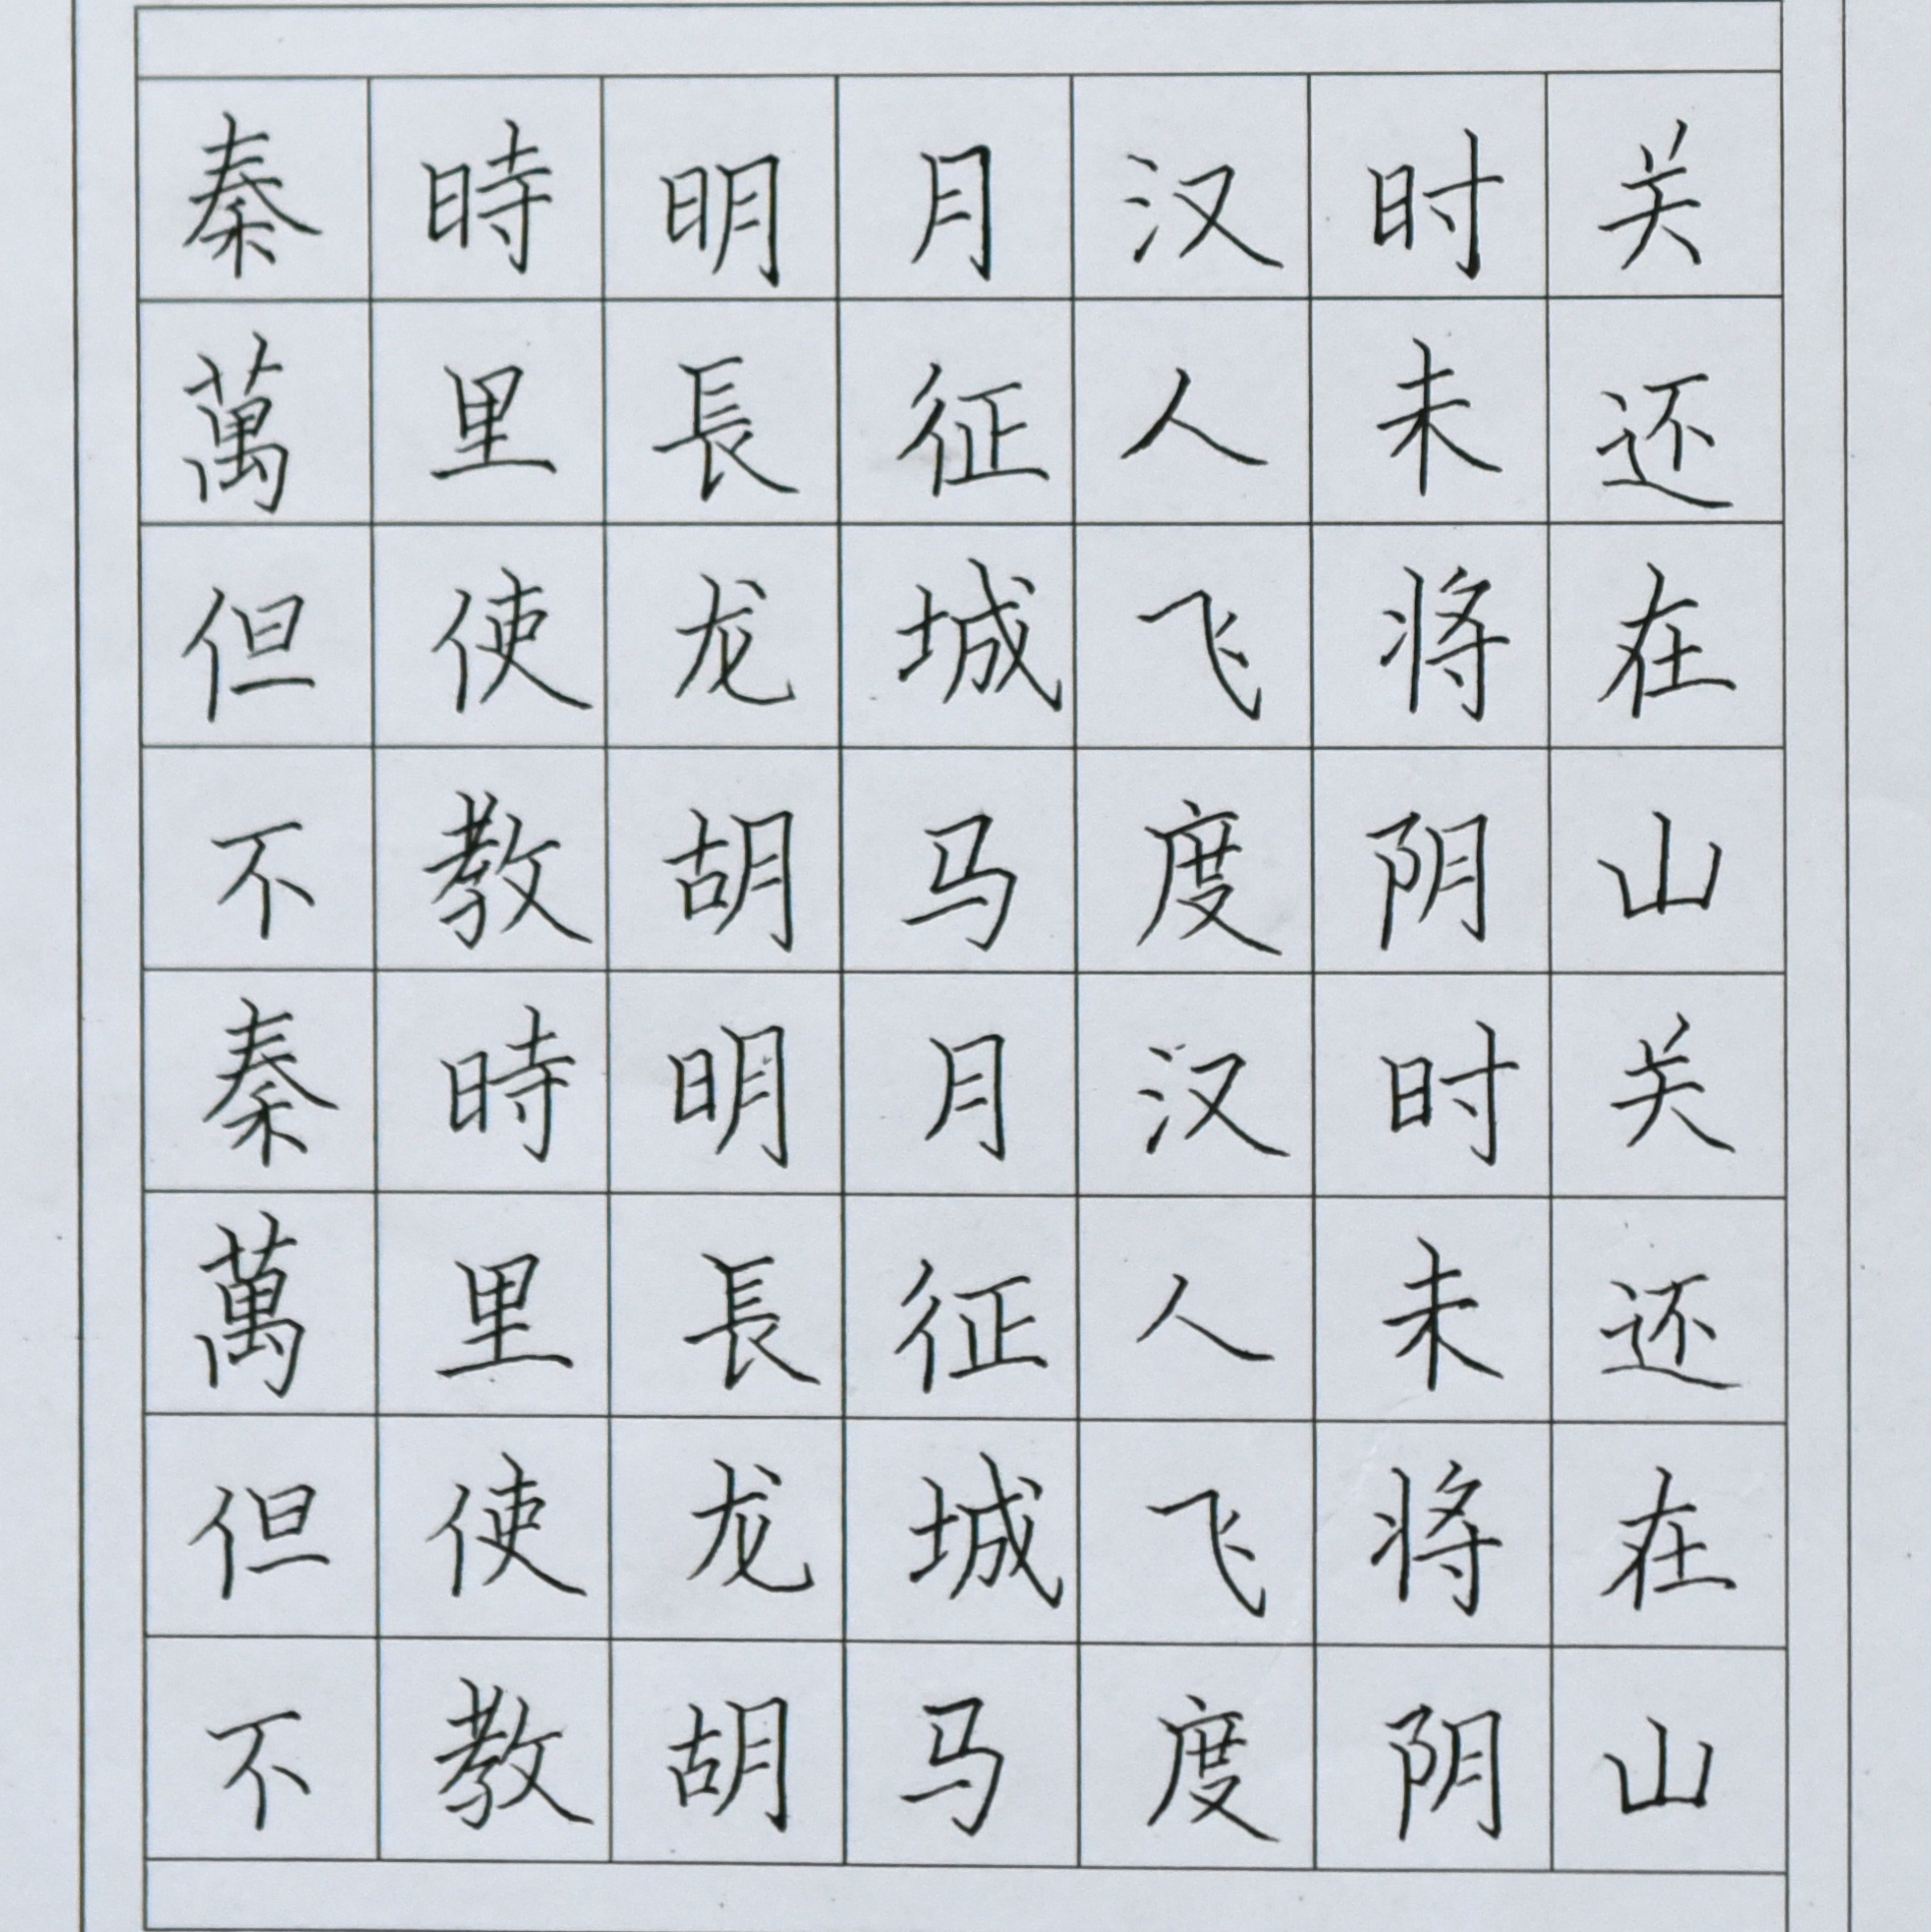 秦時明月汉时关
萬里長征人未还
但使龙城飞将在
不教胡马度阴山
秦時明月汉时关
萬里長征人未还
但使龙城飞将在
不教胡马度阴山